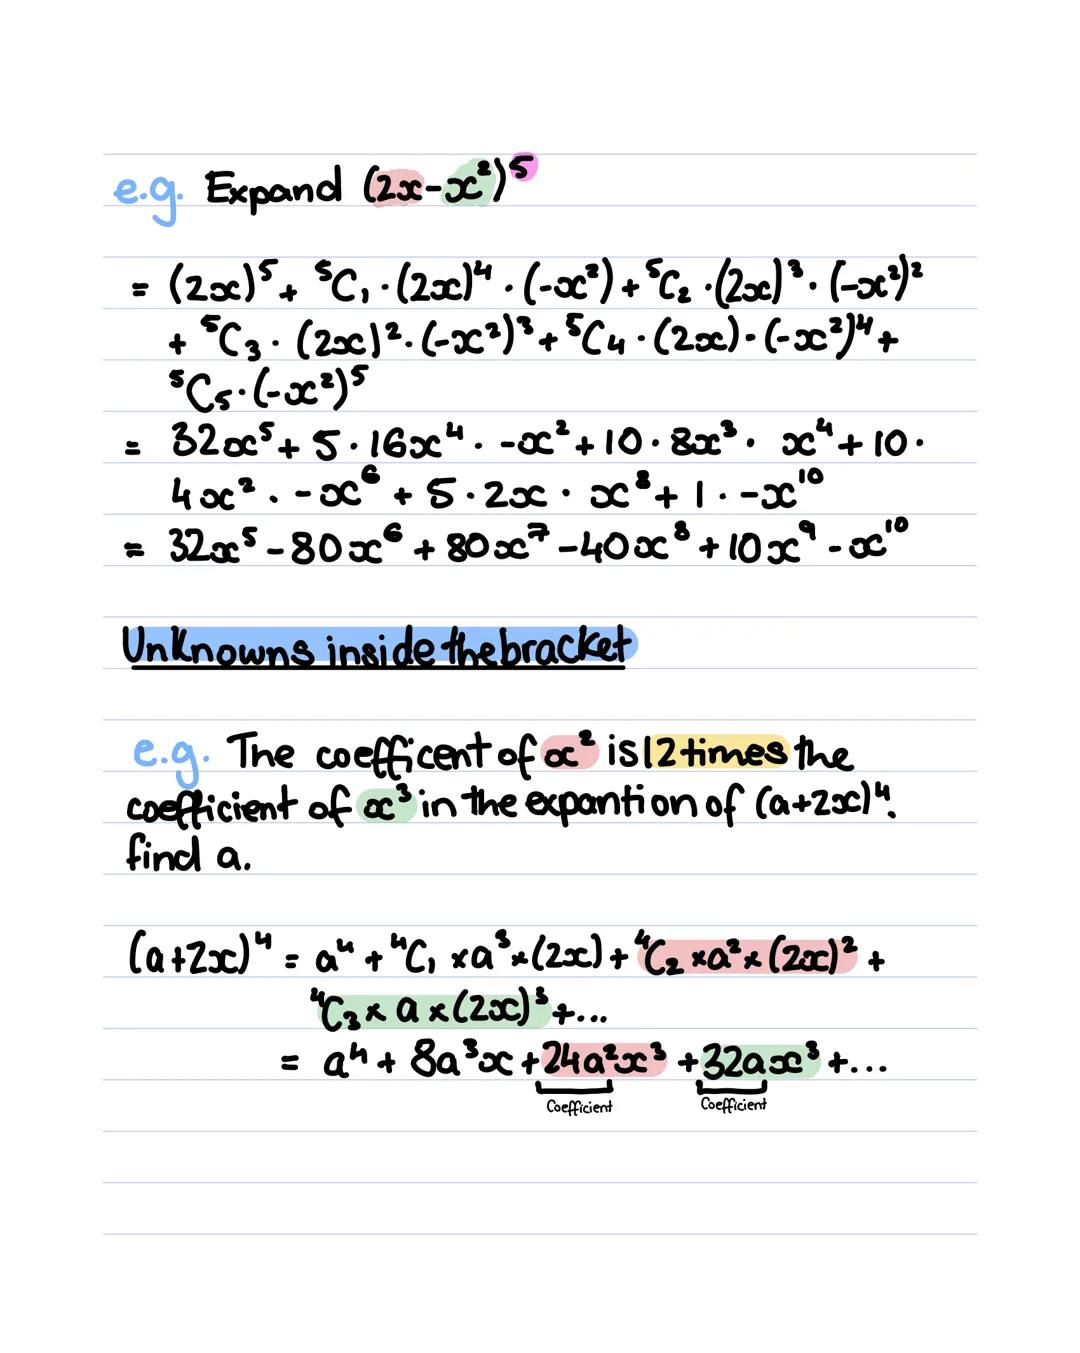 e.g. Expand (2x-x²)⁵
= (2x)⁵ + ⁵C₁ · (2x)⁴ · (-x²) + ⁵C₂ · (2x)³ · (-x²)²
+ ⁵C₃ · (2x)² · (-x²)³ + ⁵C₄ · (2x) · (-x²)⁴ +
⁵C₅ · (-x²)⁵
= 32x⁵ + 5 · 16x⁴ · -x² + 10 · 8x³ · x⁴ + 10 ·
4x² · -x⁶ + 5 · 2x · x⁸ + 1 · -x¹⁰
= 32x⁵ - 80x⁶ + 80x⁷ - 40x⁸ + 10x⁹ - x¹⁰
Unknowns inside the bracket
e.g. The coefficent of x² is 12 times the
coefficient of x³ in the expantion of (a+2x)⁴.
find a.
(a+2x)⁴ = a⁴ + ⁴C₁ × a³ × (2x) + ⁴C₂ × a² × (2x)² +
⁴C₃ × a × (2x)³ + ...
= a⁴ + 8a³x + 24a²x³ + 32ax³ + ...
Coefficient Coefficient